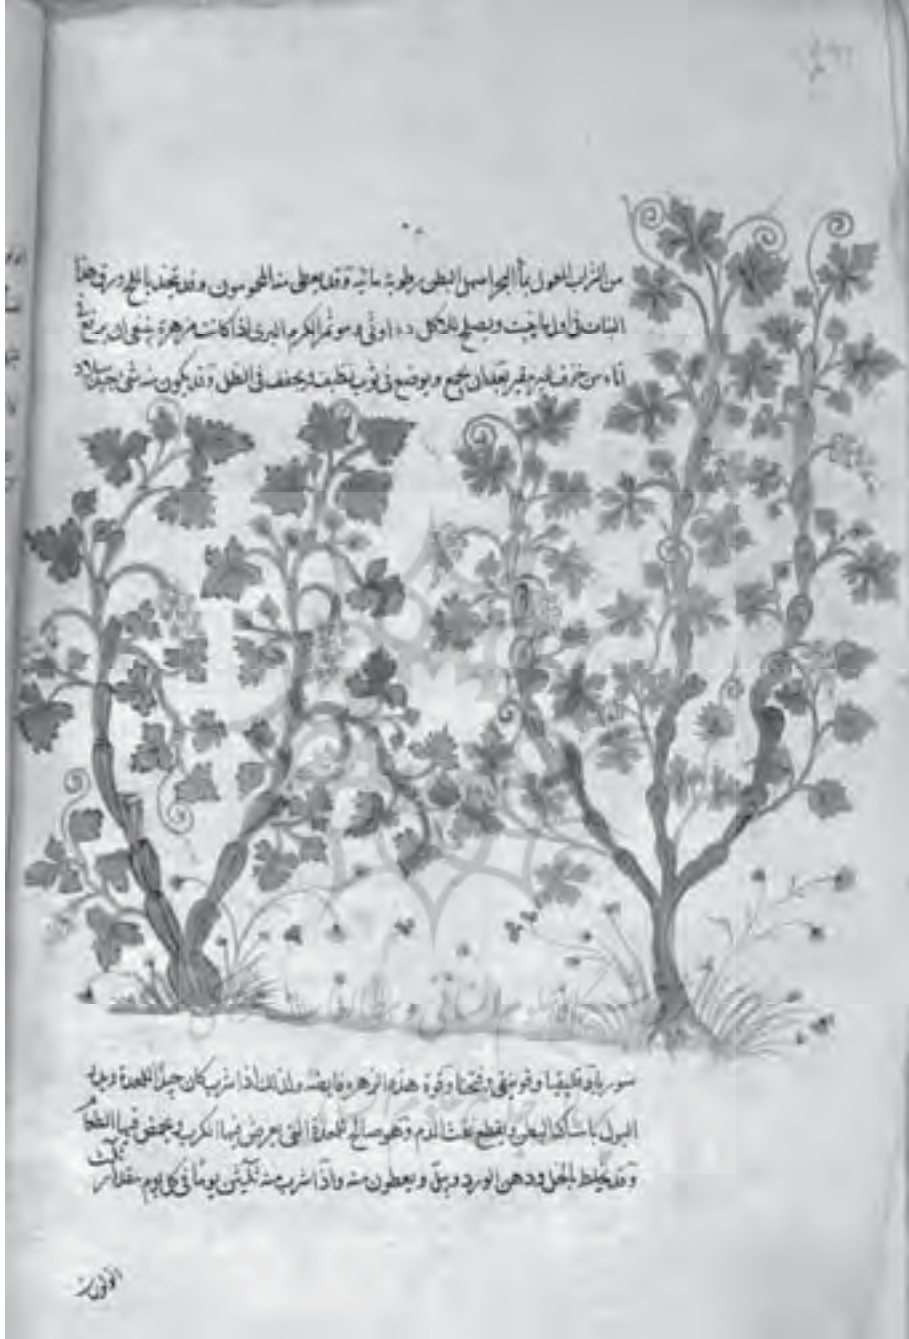 من الشراب المعمول بماء البحر اسهل البطن رطوبة مائية وقد يعطى منه المحبوسون وقد يتخذ بالملح ورق هذا
النبات فى اول ما ينبت ويصلح للاكل اونثى وهو ثمر الكرم البرى اذا كانت مزهرة ينبغى ان يرفع فى
اناء من خزف غير مقير بعد ان يجمع ويوضع فى ثوب نظيف ويجفف فى الظل وقد يكون منه شى جيد ببلاد
سوريا وقليقيا وفونيقى وقوة هذه الزهرة قابضة ولذلك اذا شرب كان جيدا للمعدة ويدر
البول باسك البطن ويقطع نفث الدم وهو صالح للمعدة التى يعرض فيها الكرب ويحمض فيها الطعام
وقد يخلط بالخل ودهن الورد ويعطون منه واذا شرب منه ثلثين يوما فى كل يوم مقدار ثلث